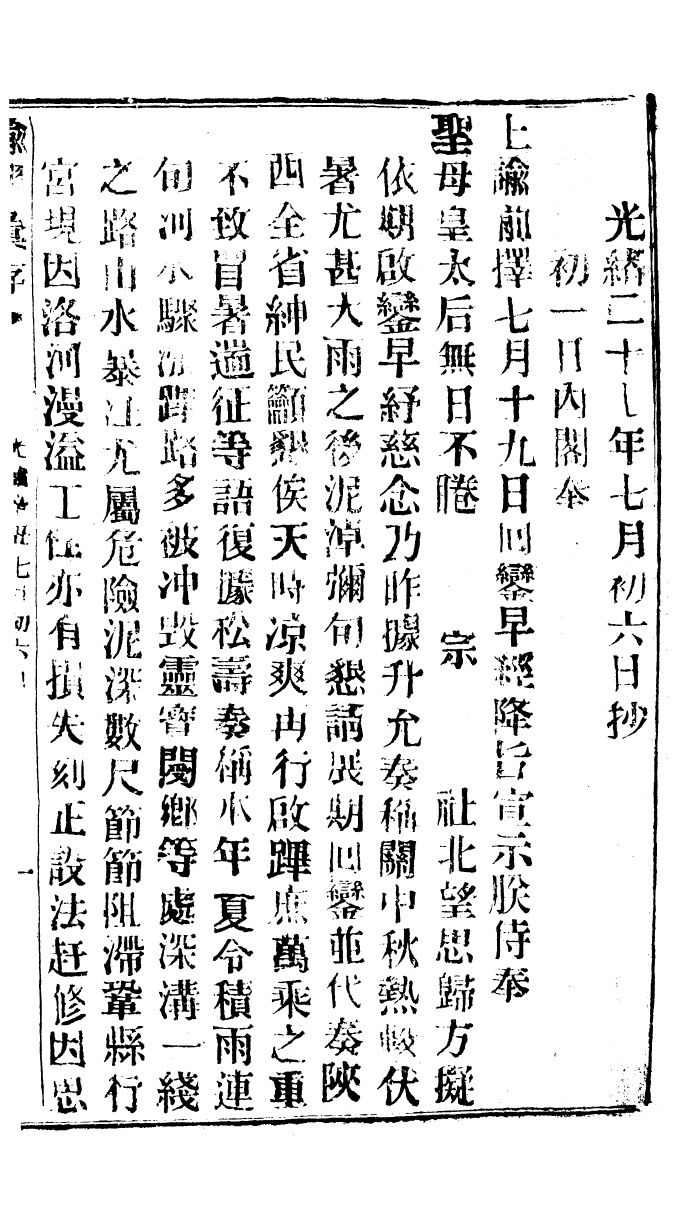 光緒二十七年七月初六日抄
初一日內閣奉
上諭前擇七月十九日回鑾早經降旨宣示朕侍奉
聖母皇太后無日不睠 宗 社北望思歸方擬
依期啟鑾早紓慈念乃昨據升允奏稱關中秋熱較伏
暑尤甚大雨之後泥淖彌旬懇請展期回鑾並代奏陝
西全省紳民籲懇俟天時凉爽再行啟蹕庶萬乘之重
不致冒暑遄征等語復據松壽奏稱本年夏令積雨連
旬河水驟漲蹕路多被冲毀靈寶閿鄉等處深溝一綫
之路山水暴注尤屬危險泥深數尺節節阻滯鞏縣行
宮現因洛河漫溢工程亦有損失刻正設法赶修因思
諭摺彙存
光緒 七月初六日
一